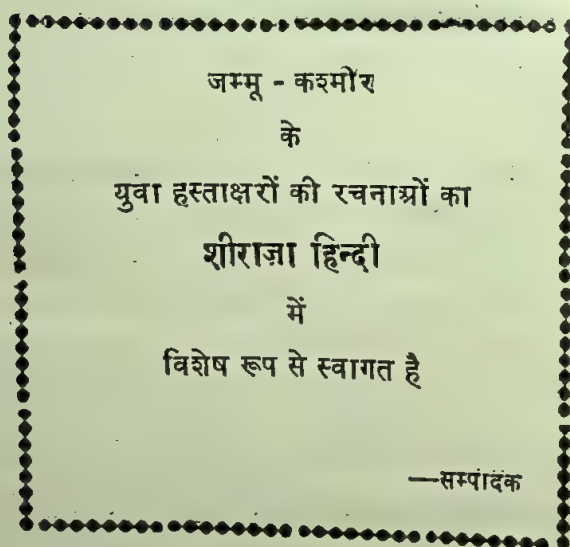 जम्मू - कश्मीर
के
युवा हस्ताक्षरों की रचनाओं का
शीराज़ा हिन्दी
में
विशेष रूप से स्वागत है
—सम्पादक